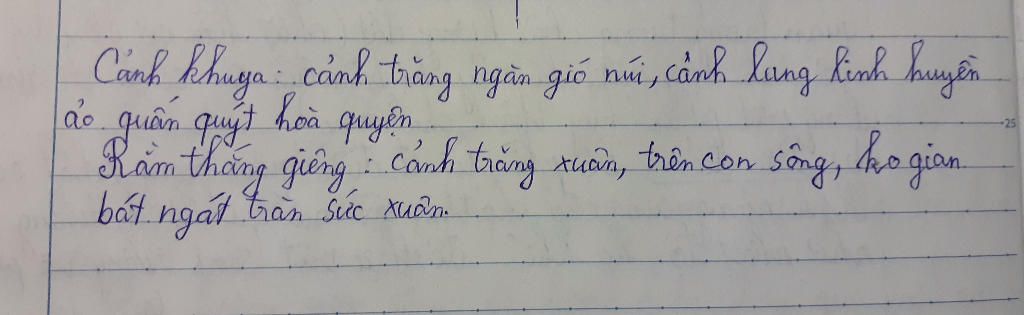 Cảnh khuya: cảnh trăng ngàn gió núi, cảnh lung linh huyền
ảo quấn quýt hoà quyện
Rằm tháng giêng: cảnh trăng xuân, trên con sông, ko gian
bát ngát tràn sức xuân.
25